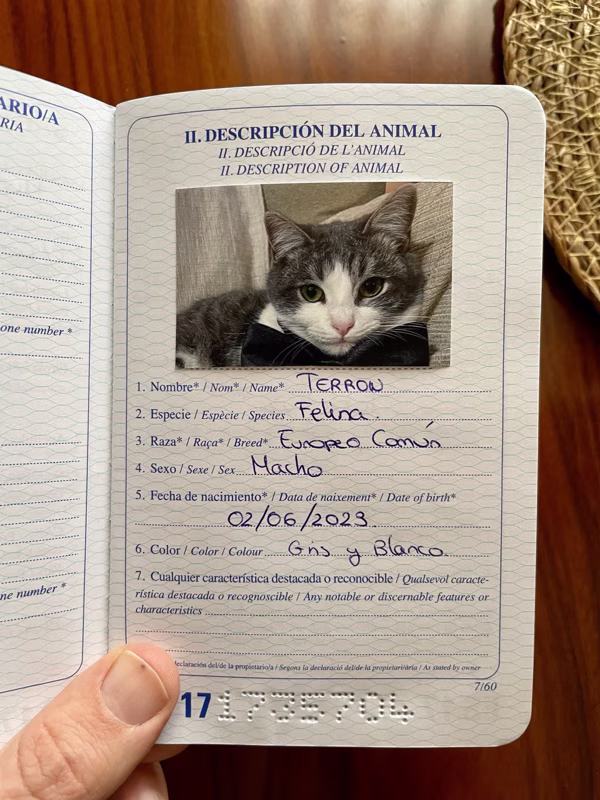 ARIO/A
RIA
one number *
ne number *
II. DESCRIPCIÓN DEL ANIMAL
II. DESCRIPCIÓ DE L'ANIMAL
II. DESCRIPTION OF ANIMAL
1. Nombre* / Nom* / Name* TERRON
2. Especie / Espècie / Species Felina.
3. Raza* / Raça* / Breed* Europeo Común
4. Sexo / Sexe / Sex Macho
5. Fecha de nacimiento* / Data de naixement* / Date of birth*
02/06/2023
6. Color / Color / Colour Gris y Blanco.
7. Cualquier característica destacada o reconocible / Qualsevol caracte-
rística destacada o recognoscible / Any notable or discernable features or
characteristics
declaración del/de la propietario/a / Segons la declaració del/de la propietari/ària / As stated by owner
7/60
17 1735704